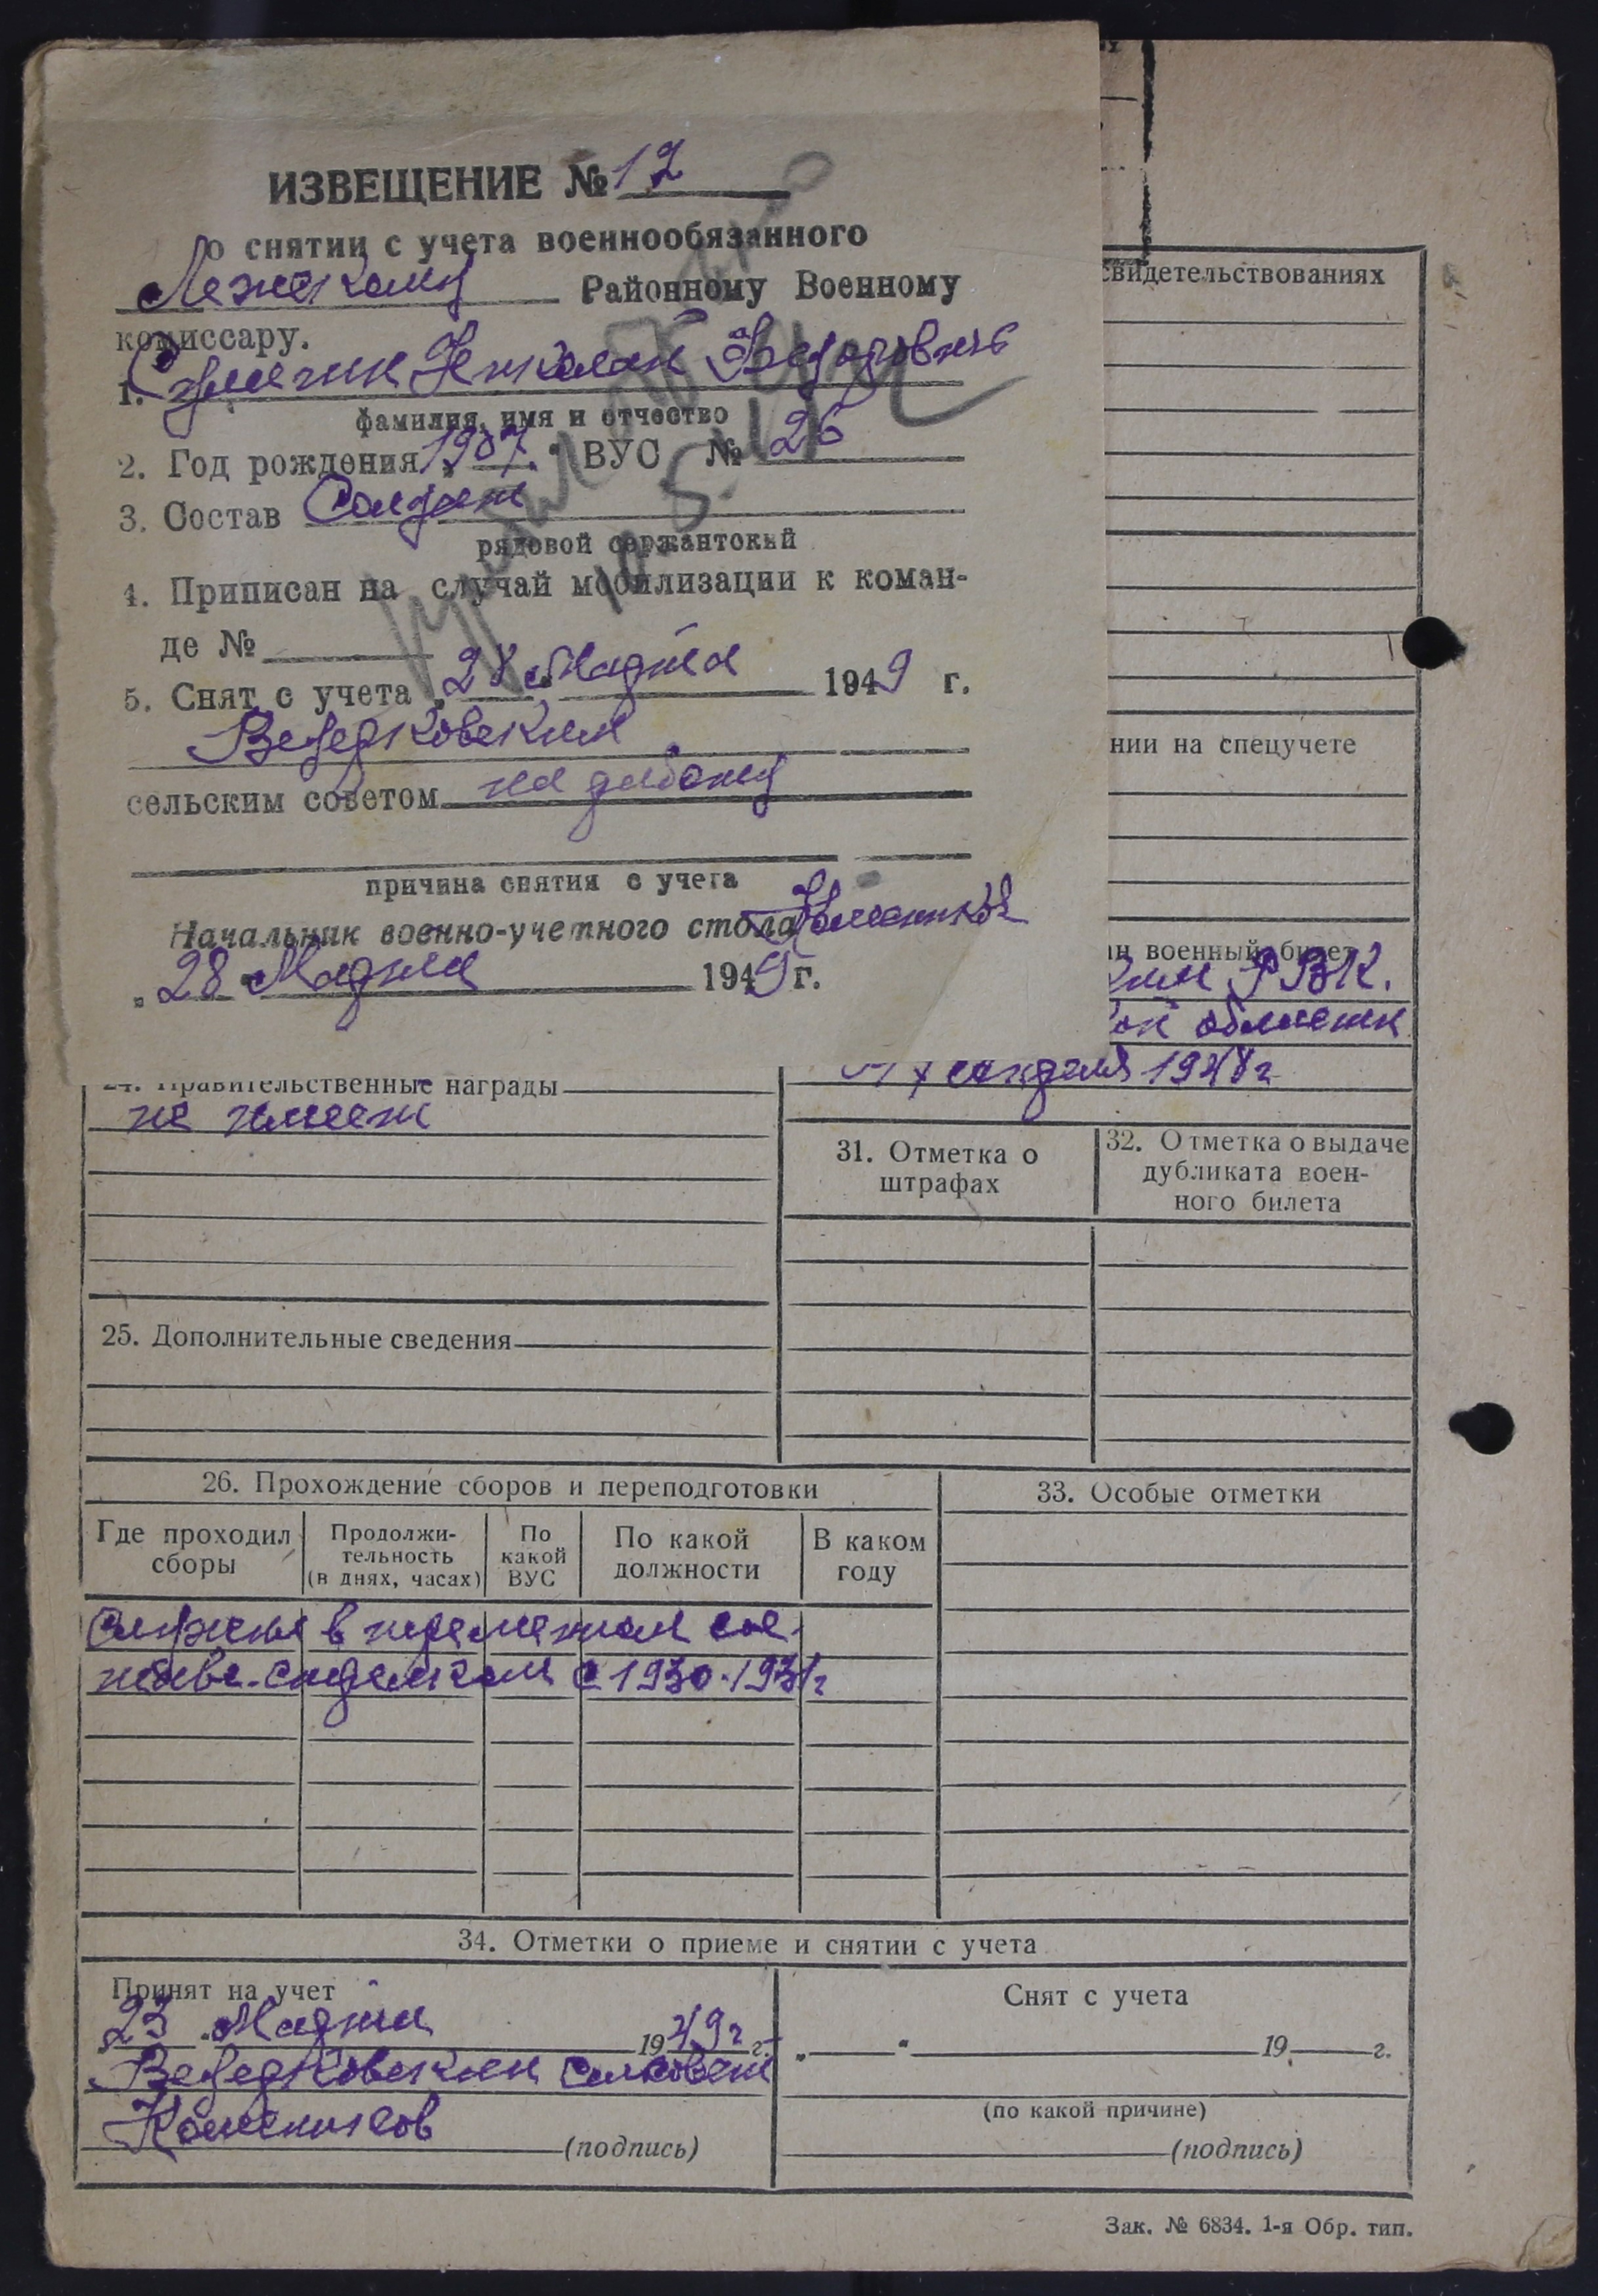 ИЗВЕЩЕНИЕ № 12
о снятии с учета военнообязанного
Лежскому Районному Военному
комиссару.
1. Николай Федорович
фамилия, имя и отчество
2. Год рождения 1907. ВУС № 26
3. Состав Солдат
рядовой сержантский
4. Приписан на случай мобилизации к коман-
де №
5. Снят с учета „28" Марта 1949 г.
Ведерковским
сельским советом на работу
причина снятия с учета
Начальник военно-учетного стола
„28" Марта 1949 г.
свидетельствованиях
нии на спецучете
ан военный билет
ким РВК.
ой области
1948 г
24. Правительственные награды
не имеет
31. Отметка о
штрафах
32. Отметка о выдаче
дубликата воен-
ного билета
25. Дополнительные сведения
26. Прохождение сборов и переподготовки
33. Особые отметки
Где проходил
сборы
Продолжи-
тельность
(в днях, часах)
По
какой
ВУС
По какой
должности
В каком
году
Служил в переменном сос-
таве стрелком с 1930-1931г
34. Отметки о приеме и снятии с учета
Принят на учет
23 Марта 1949 г. г.
Ведерковский сельсовет
(подпись)
Снят с учета
„ " 19 г.
(по какой причине)
(подпись)
Зак. № 6834. 1-я Обр. тип.